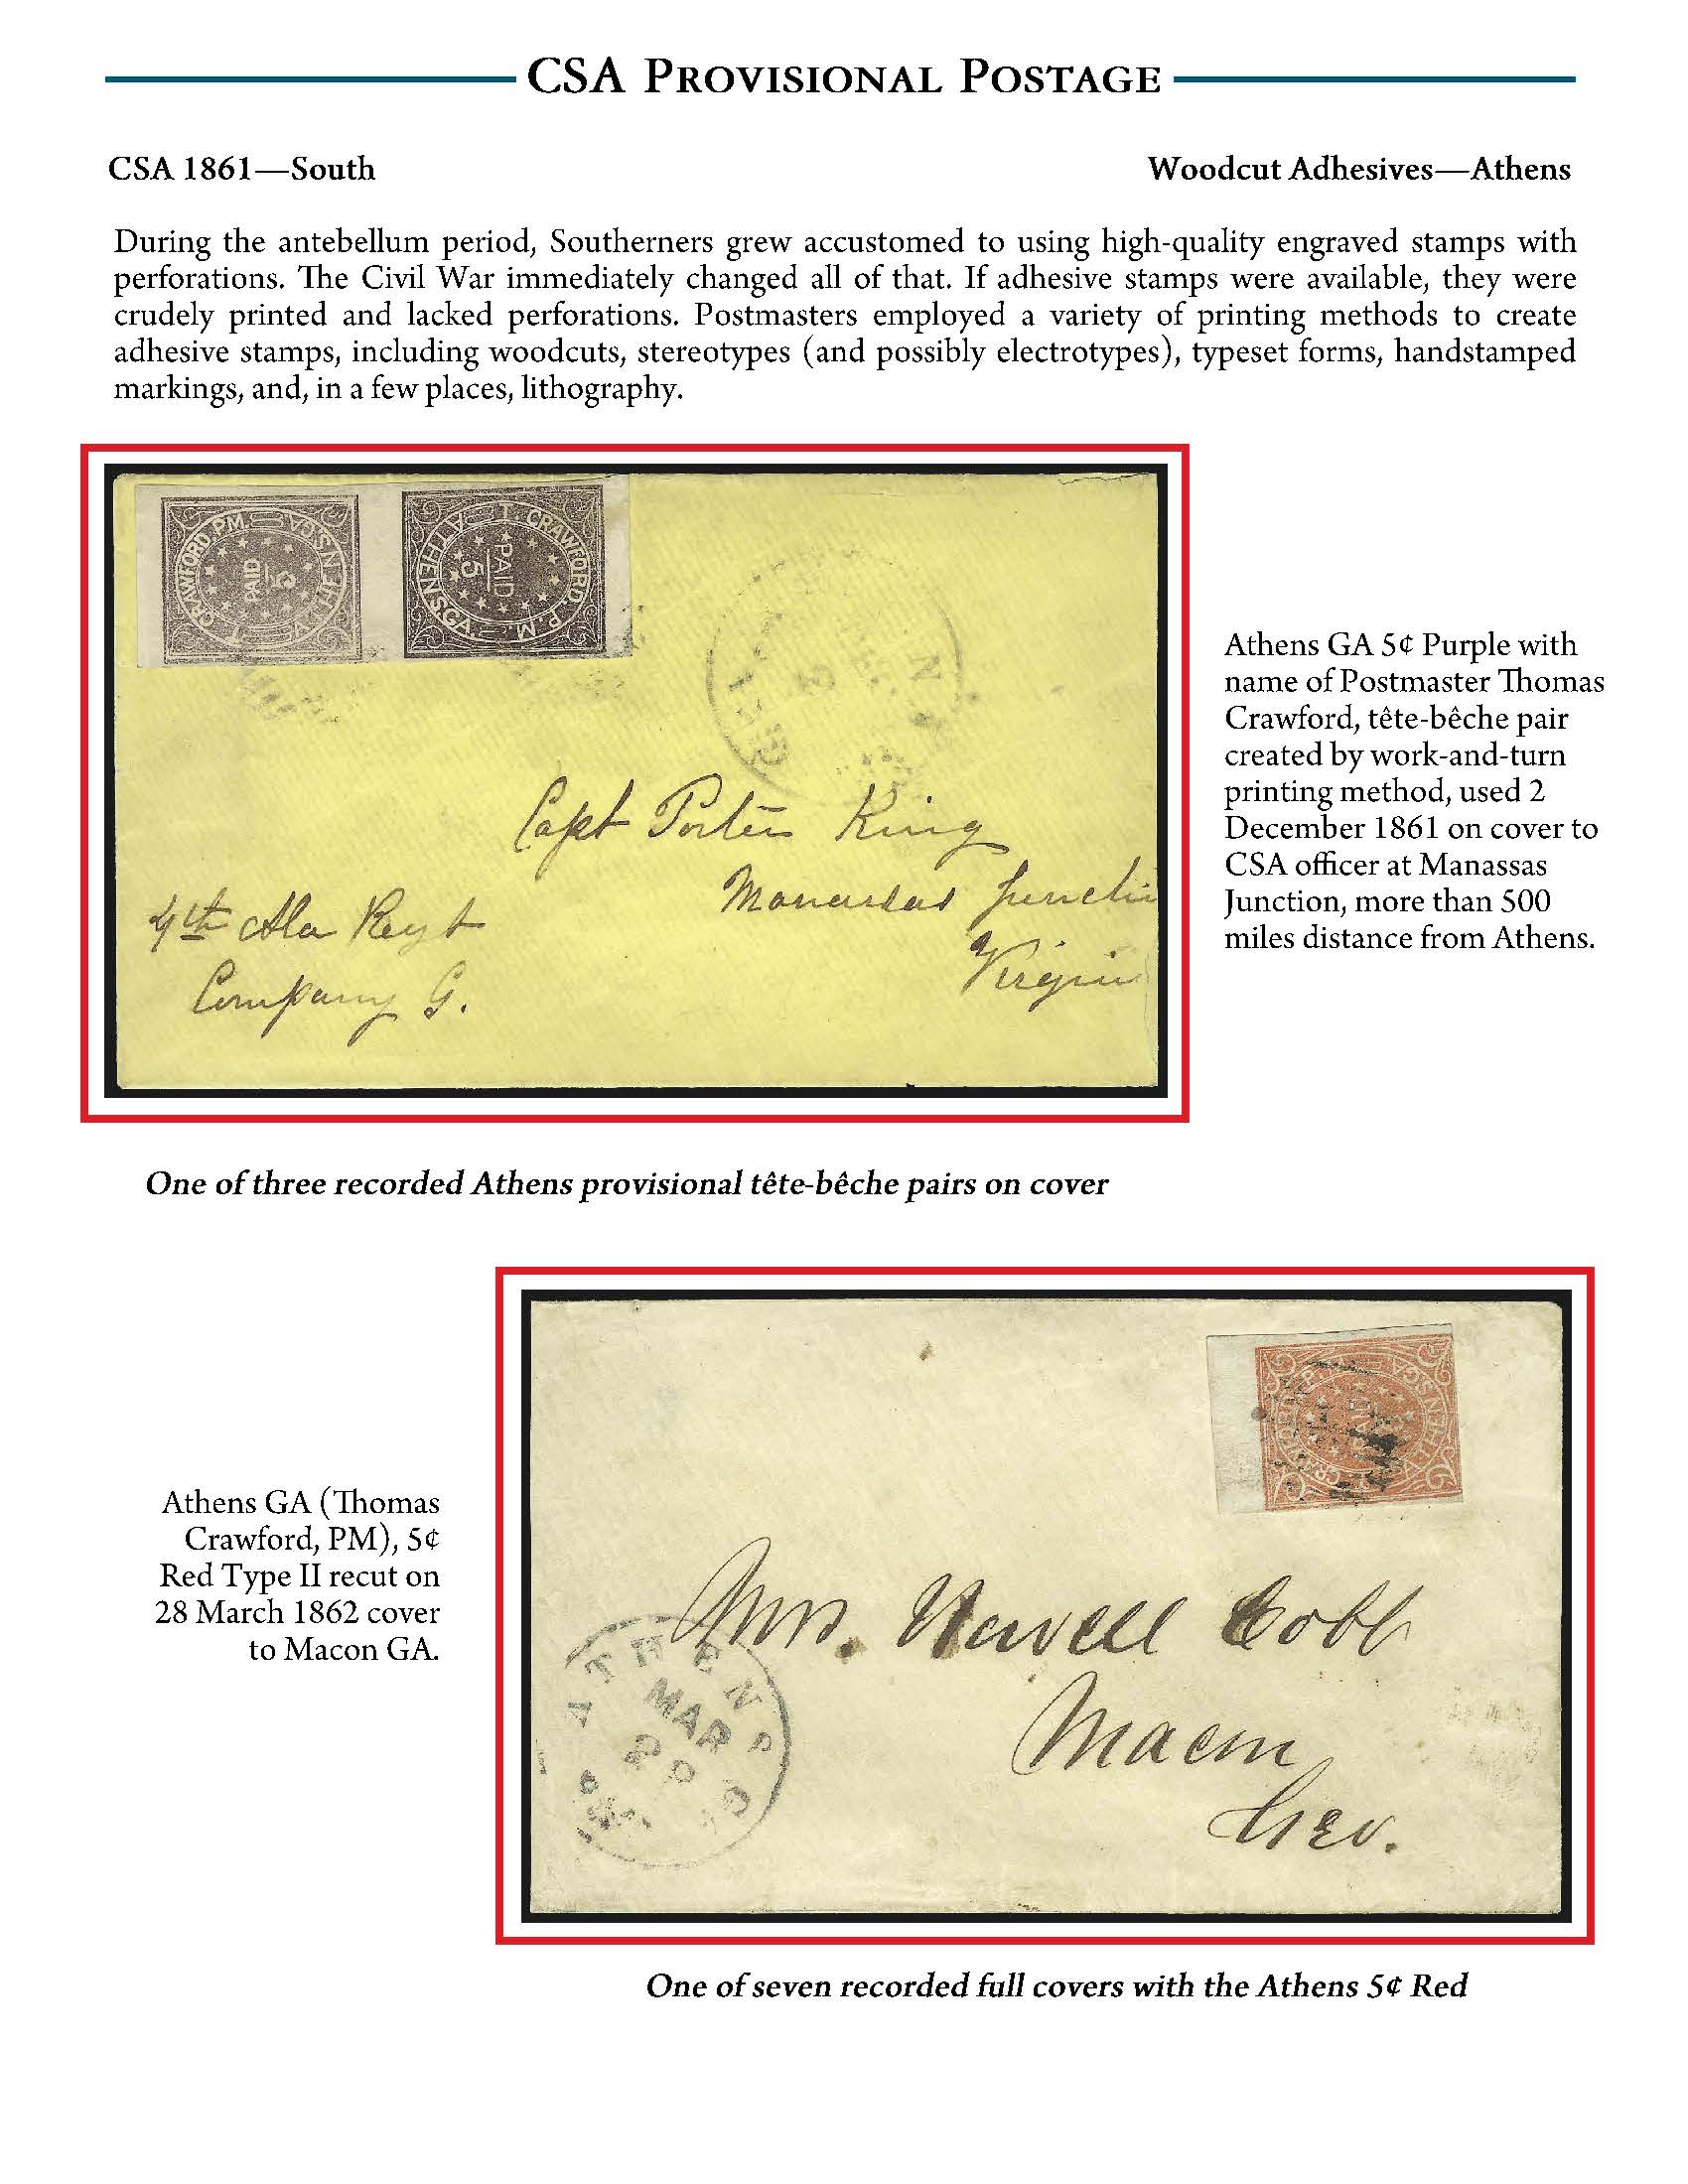 CSA Provisional Postage
CSA 1861—South
Woodcut Adhesives—Athens
During the antebellum period, Southerners grew accustomed to using high-quality engraved stamps with
perforations. The Civil War immediately changed all of that. If adhesive stamps were available, they were
crudely printed and lacked perforations. Postmasters employed a variety of printing methods to create
adhesive stamps, including woodcuts, stereotypes (and possibly electrotypes), typeset forms, handstamped
markings, and, in a few places, lithography.
T. CRAWFORD, P.M.
ATHENS, GA.
PAID
5
T. CRAWFORD, P.M.
ATHENS, GA.
PAID
5
Capt Porter King
Manassas Junctio
Virginia
4th Ala Regt
Company G.
Athens GA 5¢ Purple with
name of Postmaster Thomas
Crawford, tête-bêche pair
created by work-and-turn
printing method, used 2
December 1861 on cover to
CSA officer at Manassas
Junction, more than 500
miles distance from Athens.
One of three recorded Athens provisional tête-bêche pairs on cover
Athens GA (Thomas
Crawford, PM), 5¢
Red Type II recut on
28 March 1862 cover
to Macon GA.
ATHENS GA
CRAWFORD, P.
Mrs. Howell Cobb
Macon
Geo.
ATHENS
MAR
28
One of seven recorded full covers with the Athens 5¢ Red